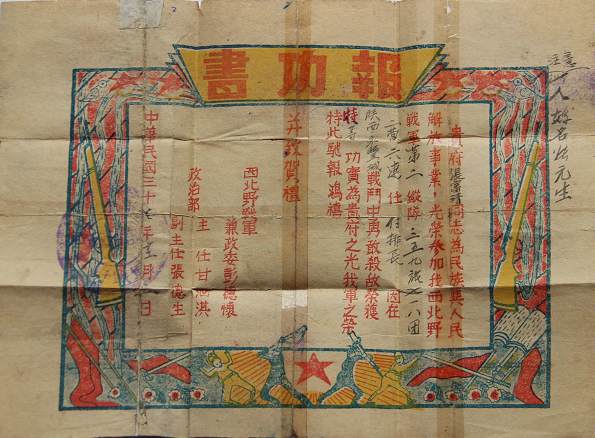 報功書
貴府張富清同志為民族與人民
解放事業，光榮參加我西北野
戰軍第二縱隊三五九旅七一八團
二营六連 任付排長 因在
陕西永豐城戰鬥中勇敢殺敵榮獲
特等功實為貴府之光我軍之榮
特此馳報鴻禧
并致賀禮
西北野戰軍
兼政委彭德懷
政治部
主任甘泗淇
副主任張德生
中華民國三十七年十二月 日
注意